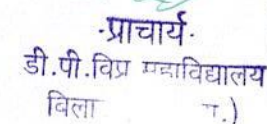 ·प्राचार्य·
डी.पी.विप्र महाविद्यालय
बिला